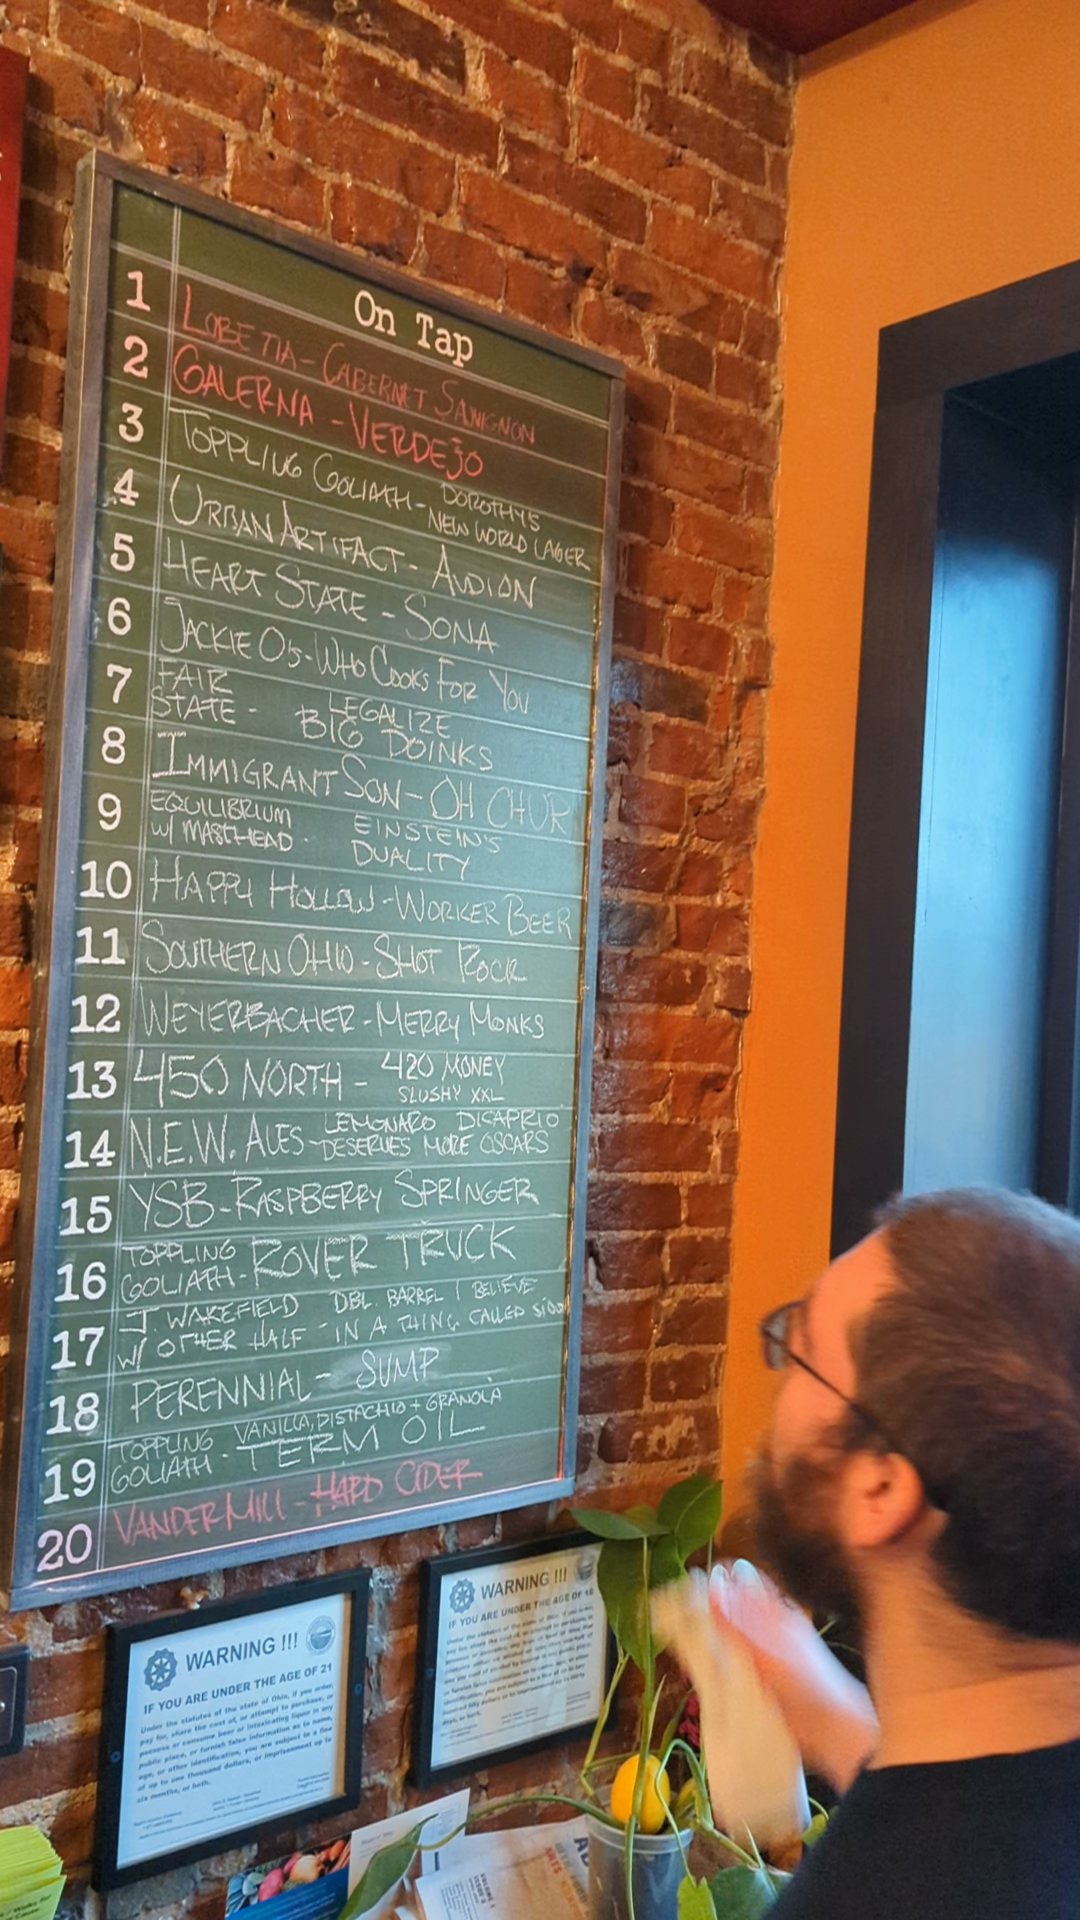 On Tap
1 LOBETIA - CABERNET SAUVIGNON
2 GALERNA - VERDEJO
3 TOPPLING GOLIATH - DOROTHY'S
NEW WORLD LAGER
4 URBAN ARTIFACT - AUDION
5 HEART STATE - SONA
6 JACKIE O'S - WHO COOKS FOR YOU
7 FAIR
STATE - LEGALIZE
BIG DOINKS
8 IMMIGRANT SON - OH CHUR
9 EQUILIBRIUM
W/ MASTHEAD - EINSTEIN'S
DUALITY
10 HAPPY HOLLOW - WORKER BEER
11 SOUTHERN OHIO - SHOT ROCK
12 WEYERBACHER - MERRY MONKS
13 450 NORTH - 420 MONEY
SLUSHY XXL
14 N.E.W. ALES - LEMONARD DICAPRIO
DESERVES MORE OSCARS
15 YSB - RASPBERRY SPRINGER
16 TOPPLING
GOLIATH - ROVER TRUCK
17 J WAKEFIELD DBL. BARREL I BELIEVE
W/ OTHER HALF - IN A THING CALLED
18 PERENNIAL - SUMP
19 TOPPLING VANILLA, PISTACHIO + GRANOLA
GOLIATH - TERM OIL
20 VANDER MILL - HARD CIDER
WARNING !!!
IF YOU ARE UNDER THE AGE OF 21
Under the statutes of the state of Ohio, if you order,
pay for, share the cost of, or attempt to purchase, or
possess or consume beer or intoxicating liquor in any
public place, or furnish false information as to name,
age, or other identification, you are subject to a fine
of up to one thousand dollars, or imprisonment up to
six months, or both.
WARNING !!!
IF YOU ARE UNDER THE AGE OF 18